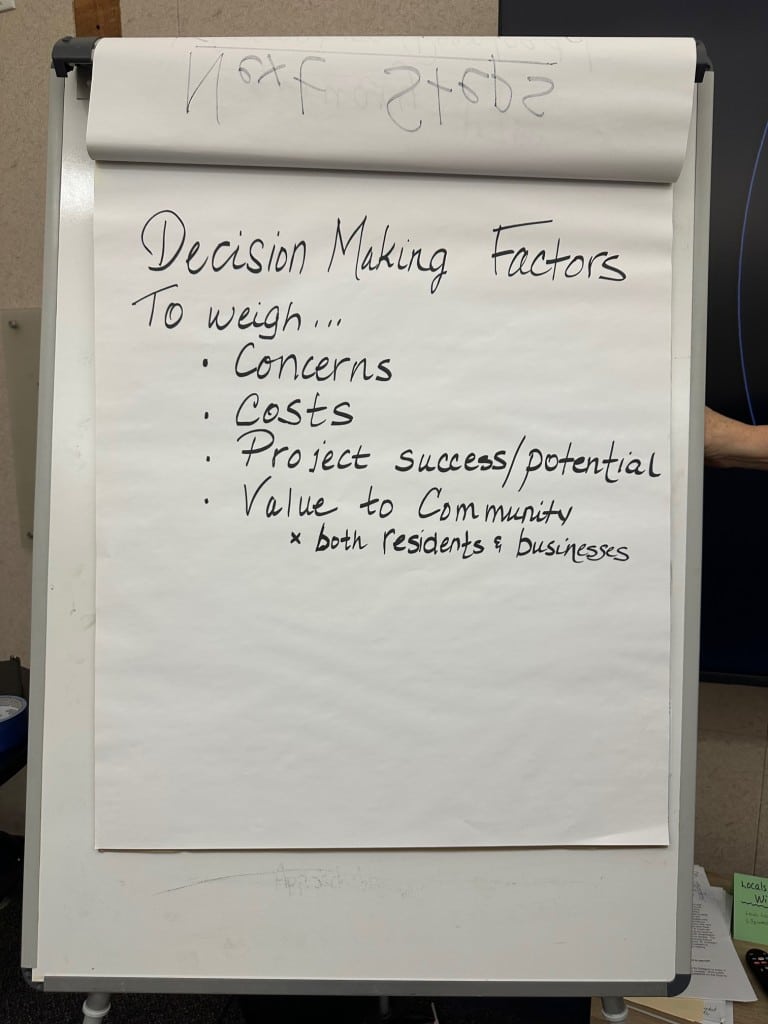 Next Steps
Decision Making Factors
To weigh...
• Concerns
• Costs
• Project success/potential
• Value to Community
x both residents & businesses
Locals
Wi